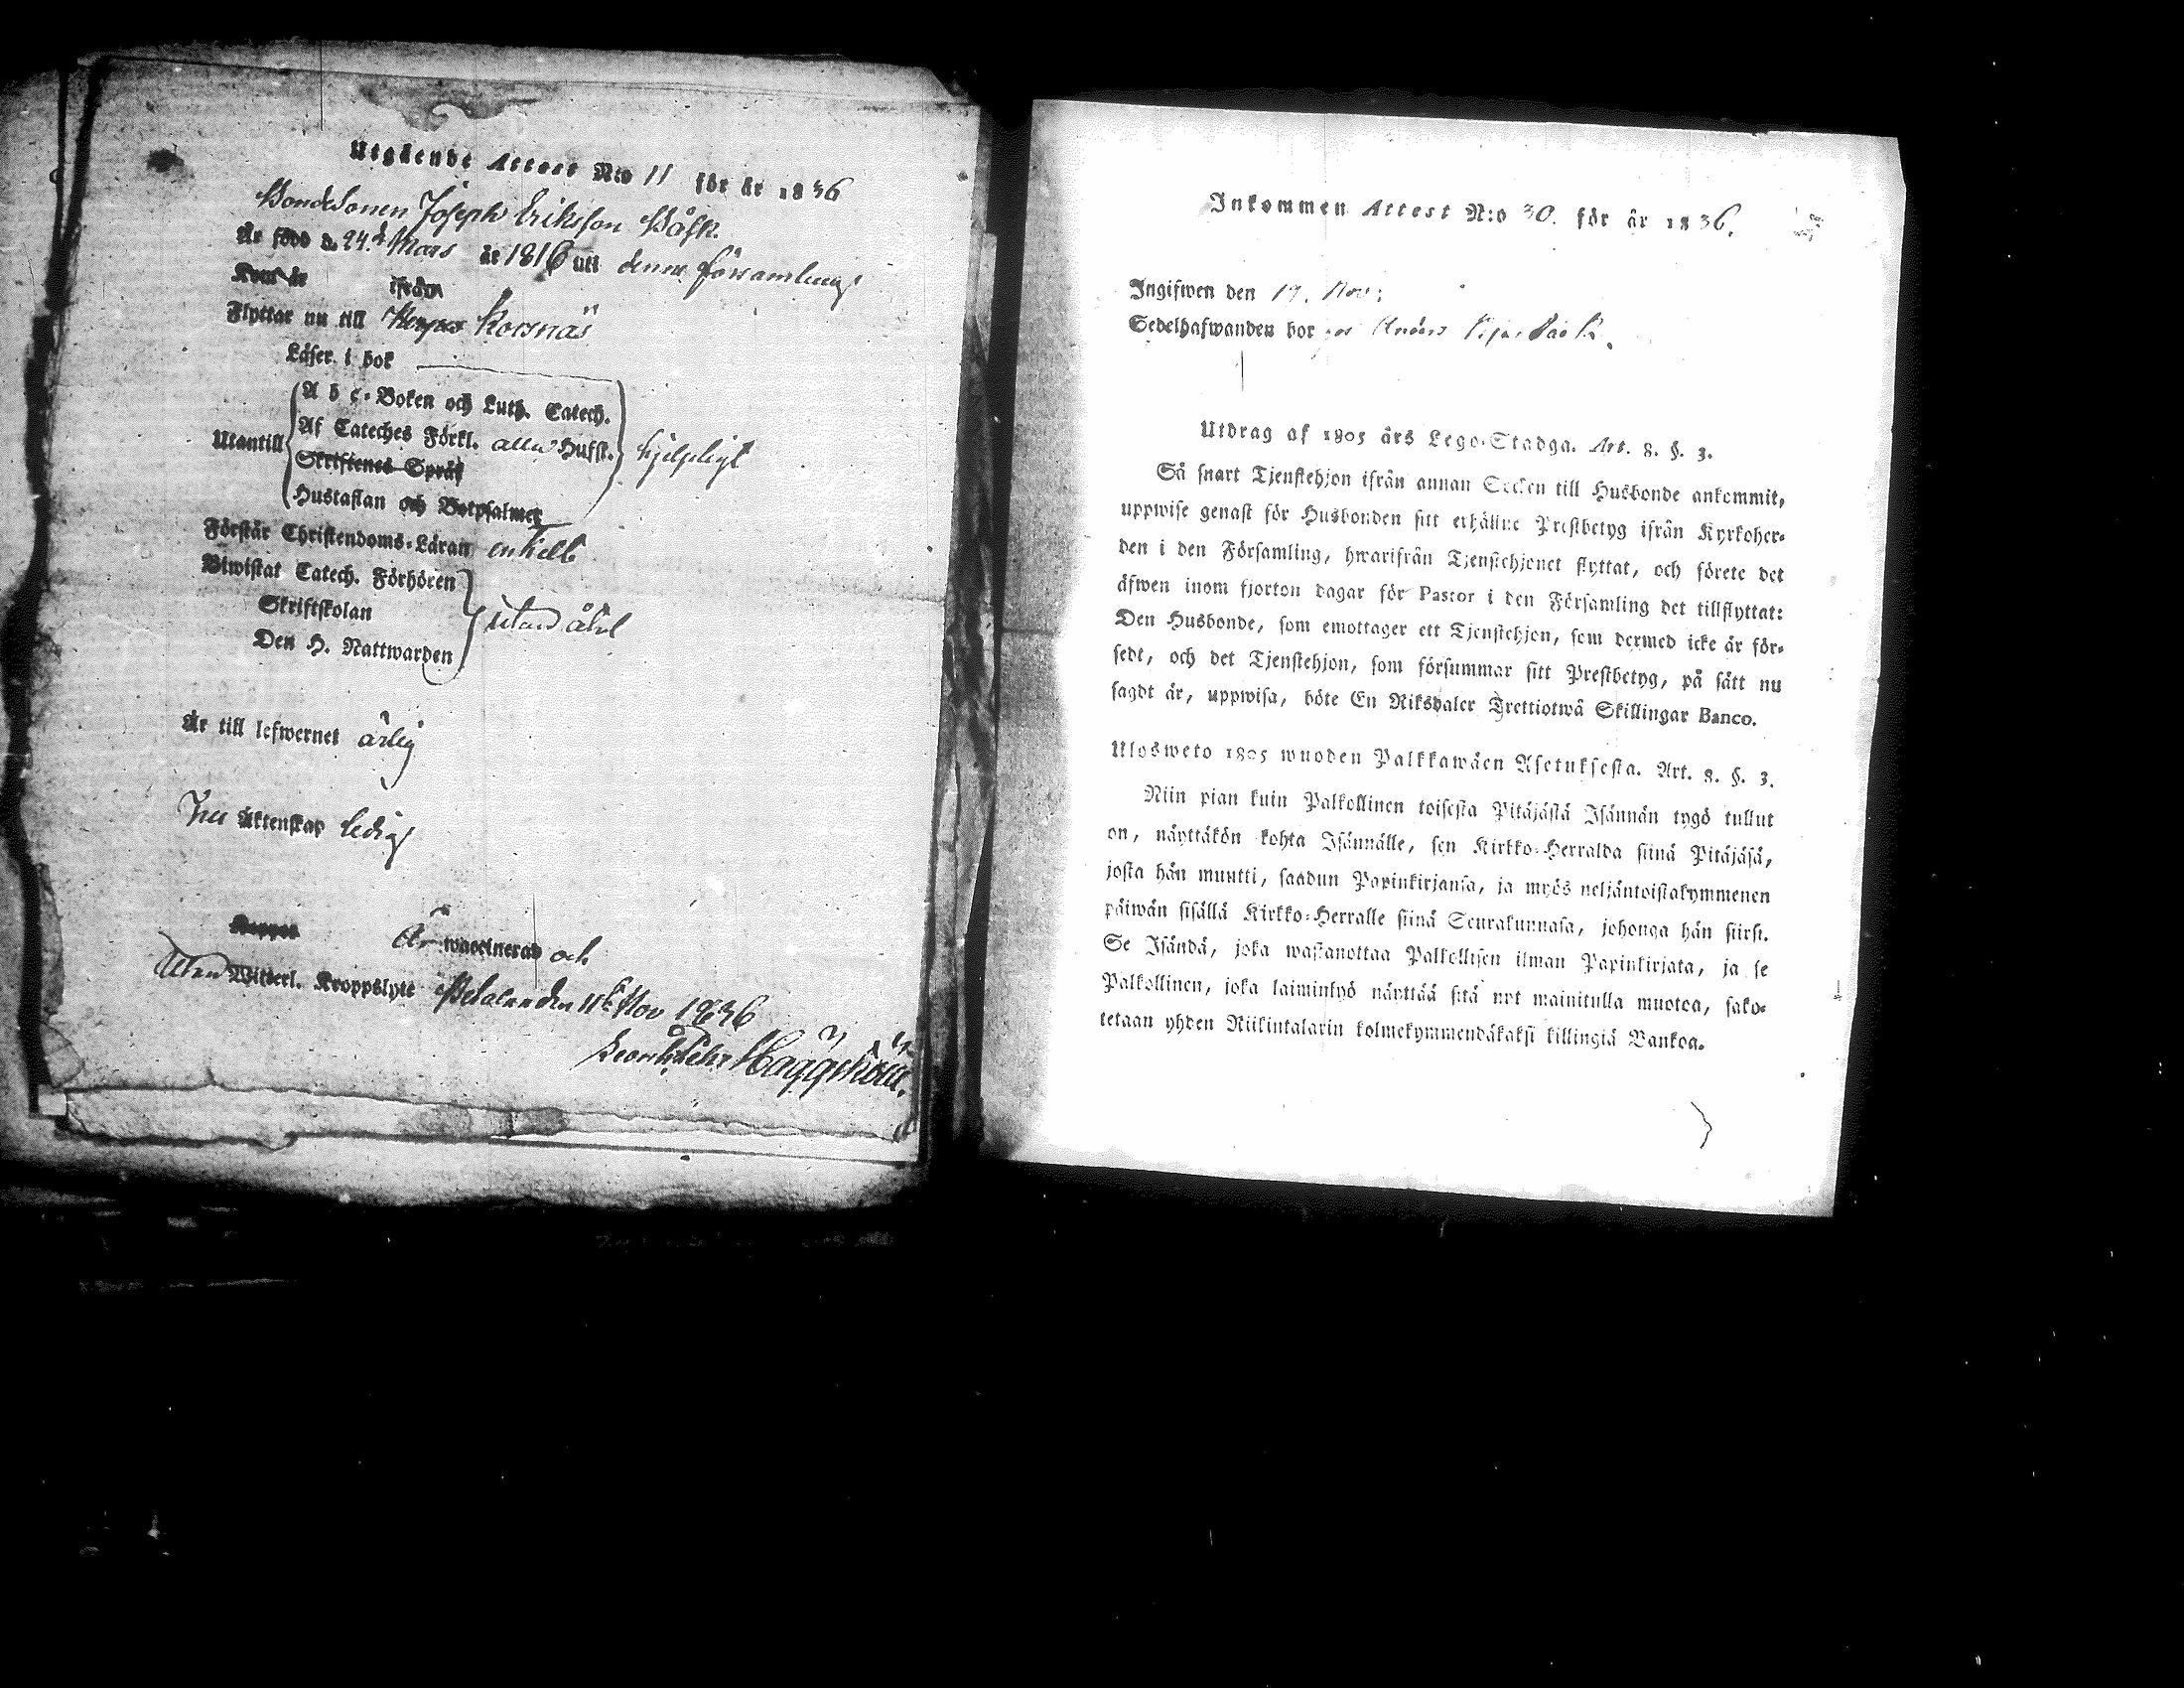 Utgående Attest N:o 11 för år 1836
Bondesonen Joseph Eriksson Båsk.
Är född d. 24. Mars år 1816 uti denna församling
Kom år ifrån
Flyttar nu till Korsnäs
Läser i bok
A b c-Boken och Luth. Catech.
Utantill Af Cateches Förkl. alla Hufst. hjelpligt
Skriftenes Språk
Hustaflan och Botpsalmer
Förstår Christendoms-Läran enkelt
Biwistat Catech. Förhören
Skriftskolan utan åtal
Den H. Nattwarden
Är till lefwernet ärlig
Till Äktenskap ledig
Koppor Är waccinerad och
Utan Witterl. Kroppslyte Petalax den 11 Nov 1836
Häggström.
Inkommen Attest N:o 30. för år 1836.
Ingifwen den 19. Nov:
Sedelhafwanden bor hos Anders
Utdrag af 1805 års Lego-Stadga. Art. 8. §. 3.
Så snart Tjenstehjon ifrån annan Socken till Husbonde ankommit,
uppwise genast för Husbonden sitt erhållne Prestbetyg ifrån Kyrkoher-
den i den Församling, hwarifrån Tjenstehjonet flyttat, och förete det
äfwen inom fjorton dagar för Pastor i den Församling det tillflyttat:
Den Husbonde, som emottager ett Tjenstehjon, som dermed icke är för-
sedt, och det Tjenstehjon, som försummar sitt Prestbetyg, på sätt nu
sagdt är, uppwisa, böte En Riksdaler Trettiotwå Skillingar Banco.
Ulosweto 1805 wuoden Palkkawäen Asetuksesta. Art. 8. §. 3.
Niin pian kuin Palkollinen toisesta Pitäjästä Isännän tygö tullut
on, näyttäkön kohta Isännälle, sen Kirkko-Herralda siinä Pitäjäsä,
josta hän muutti, saadun Papinkirjansa, ja myös neljäntoistakymmenen
päiwän sisällä Kirkko-Herralle siinä Seurakunnasa, johonga hän siirsi.
Se Isändä, joka wastanottaa Palkollisen ilman Papinkirjata, ja se
Palkollinen, joka laiminlyö näyttää sitä nyt mainitulla muotoa, sako-
tetaan yhden Riikintalarin kolmekymmendäkaksi killingiä Bankoa.